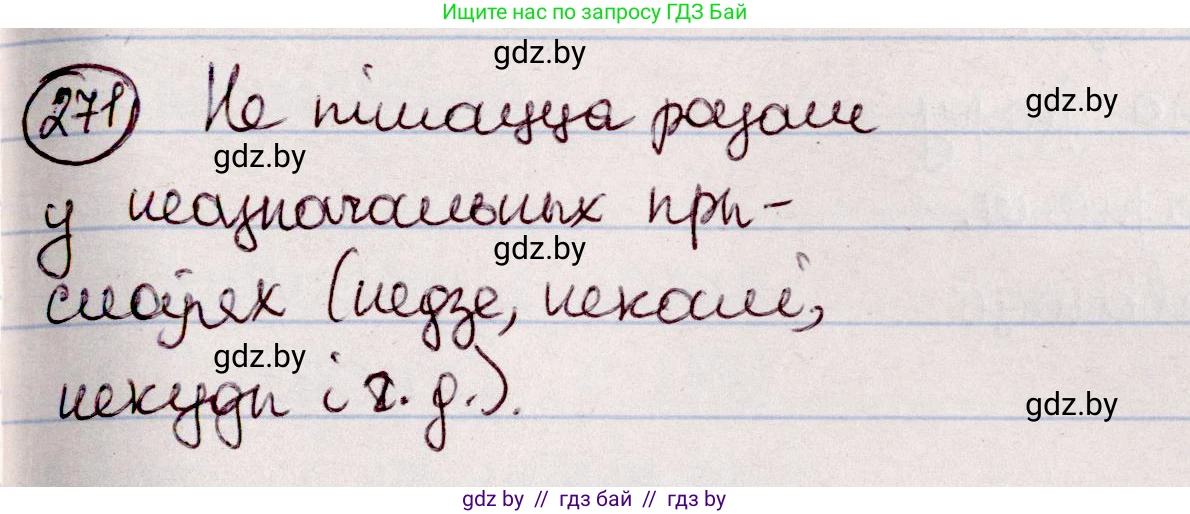 Ищите нас по запросу ГДЗ Бай
gdz.by
271 Не пішацца разам
gdz.by
gdz.by
у неазначальных пры-
gdz.by
слоўях (недзе, некалі,
gdz.by
некуды і г. д.).
gdz.by
gdz by // гдз бай // гдз by